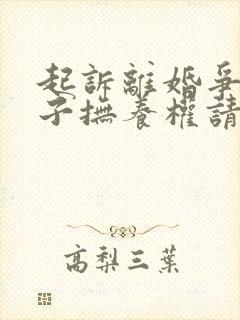 起訴離婚爭
子撫養權請
高梨三葉